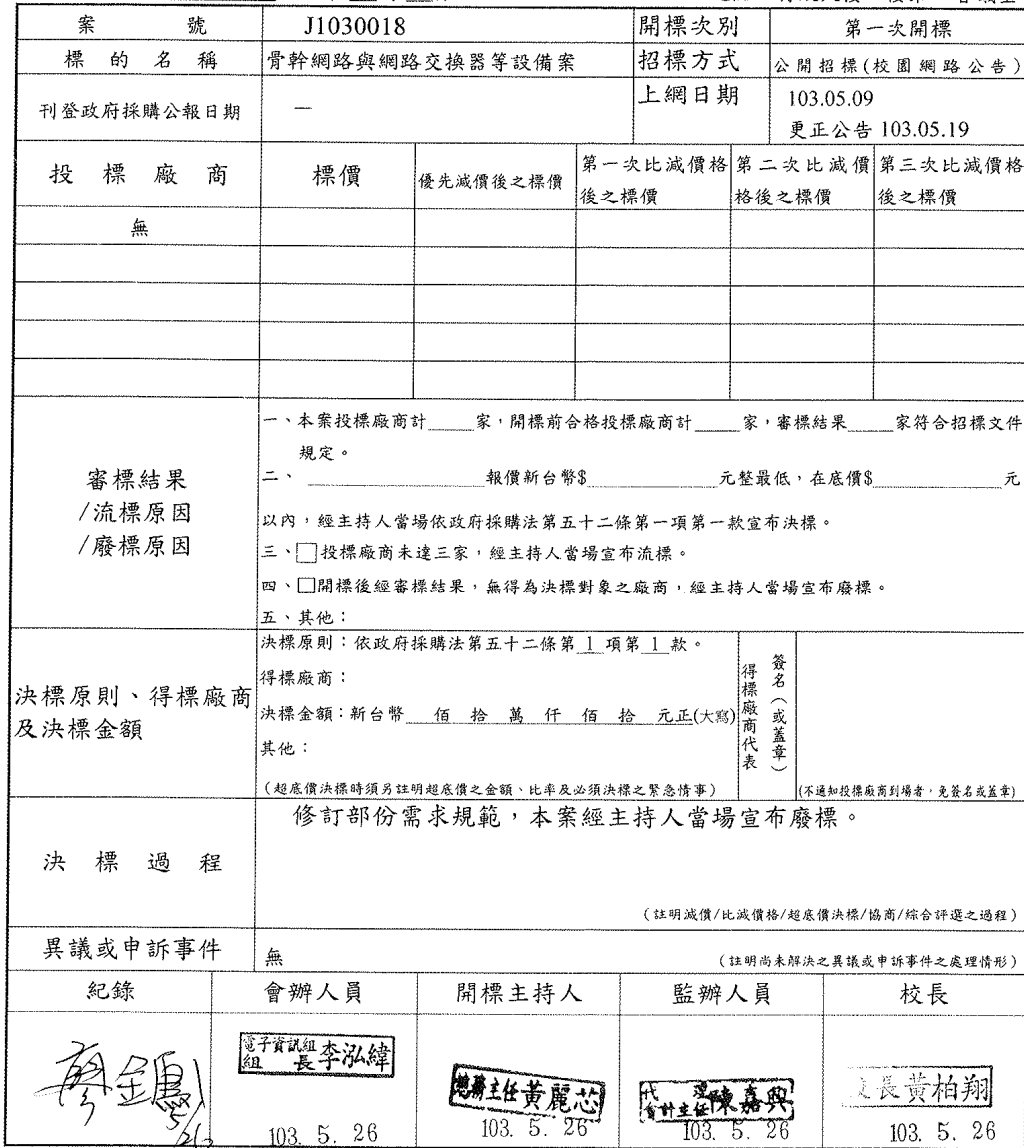 案號 J1030018 開標次別 第一次開標
標的名稱 骨幹網路與網路交換器等設備案 招標方式 公開招標(校園網路公告)
刊登政府採購公報日期 — 上網日期 103.05.09
更正公告 103.05.19
投標廠商 標價 優先減價後之標價 第一次比減價格後之標價 第二次比減價格後之標價 第三次比減價格後之標價
無
審標結果
/流標原因
/廢標原因
一、本案投標廠商計____家,開標前合格投標廠商計____家,審標結果____家符合招標文件
規定。
二、____報價新台幣$____元整最低,在底價$____元
以內,經主持人當場依政府採購法第五十二條第一項第一款宣布決標。
三、□投標廠商未達三家,經主持人當場宣布流標。
四、□開標後經審標結果,無得為決標對象之廠商,經主持人當場宣布廢標。
五、其他:
決標原則、得標廠商
及決標金額
決標原則:依政府採購法第五十二條第 1 項第 1 款。
得標廠商:
決標金額:新台幣 佰 拾 萬 仟 佰 拾 元正(大寫)
其他:
(超底價決標時須另註明超底價之金額、比率及必須決標之緊急情事)
得標廠商代表
簽名(或蓋章)
(不通知投標廠商到場者,免簽名或蓋章)
決標過程
修訂部份需求規範,本案經主持人當場宣布廢標。
(註明減價/比減價格/超底價決標/協商/綜合評選之過程)
異議或申訴事件 無 (註明尚未解決之異議或申訴事件之處理情形)
紀錄 會辦人員 開標主持人 監辦人員 校長
電子資訊組
組長 李泓緯
總務主任 黃麗芯
代理
會計主任 陳嘉興
長 黃柏翔
103. 5. 26 103. 5. 26 103. 5. 26 103. 5. 26